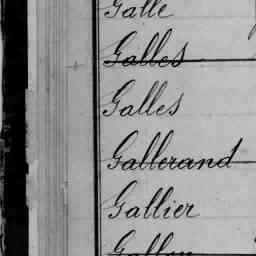 Galle
Galles
Galles
Gallerand
Gallier